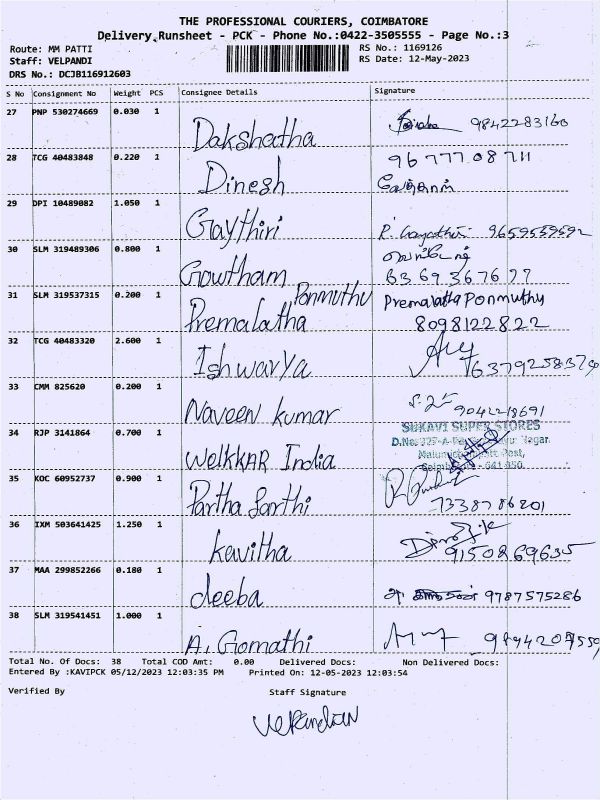 THE PROFESSIONAL COURIERS, COIMBATORE
Delivery Runsheet - PCK - Phone No.:0422-3505555 - Page No.:3
Route: MM PATTI
RS No.: 1169126
Staff: VELPANDI
RS Date: 12-May-2023
DRS No.: DCJB116912603
S No Consignment No Weight PCS Consignee Details Signature
27 PNP 530274669 0.030 1 Dakshatha 9842283160
28 TCG 40483848 0.220 1 Dinesh 9677708711
29 DPI 10489082 1.050 1 Gaythiri R. Gayathri 9659559592
30 SLM 319489306 0.800 1 Gowtham 6369367677
31 SLM 319537315 0.200 1 Premalatha Ponmuthu Premalatha Ponmuthy
8098122822
32 TCG 40483320 2.600 1 Ishwarya
33 CMM 825620 0.200 1 Naveen kumar 9042218691
34 RJP 3141864 0.700 1 Welkkar India SUKAVI SUPER STORES
35 KOC 60952737 0.900 1 Partha Sarthi 7338786201
36 IXM 503641425 1.250 1 kavitha 9150869635
37 MAA 299852266 0.180 1 deeba 9787575286
38 SLM 319541451 1.000 1 A. Gomathi
Total No. Of Docs: 38 Total COD Amt: 0.00 Delivered Docs: Non Delivered Docs:
Entered By :KAVIPCK 05/12/2023 12:03:35 PM Printed On: 12-05-2023 12:03:54
Verified By Staff Signature
Velpandian